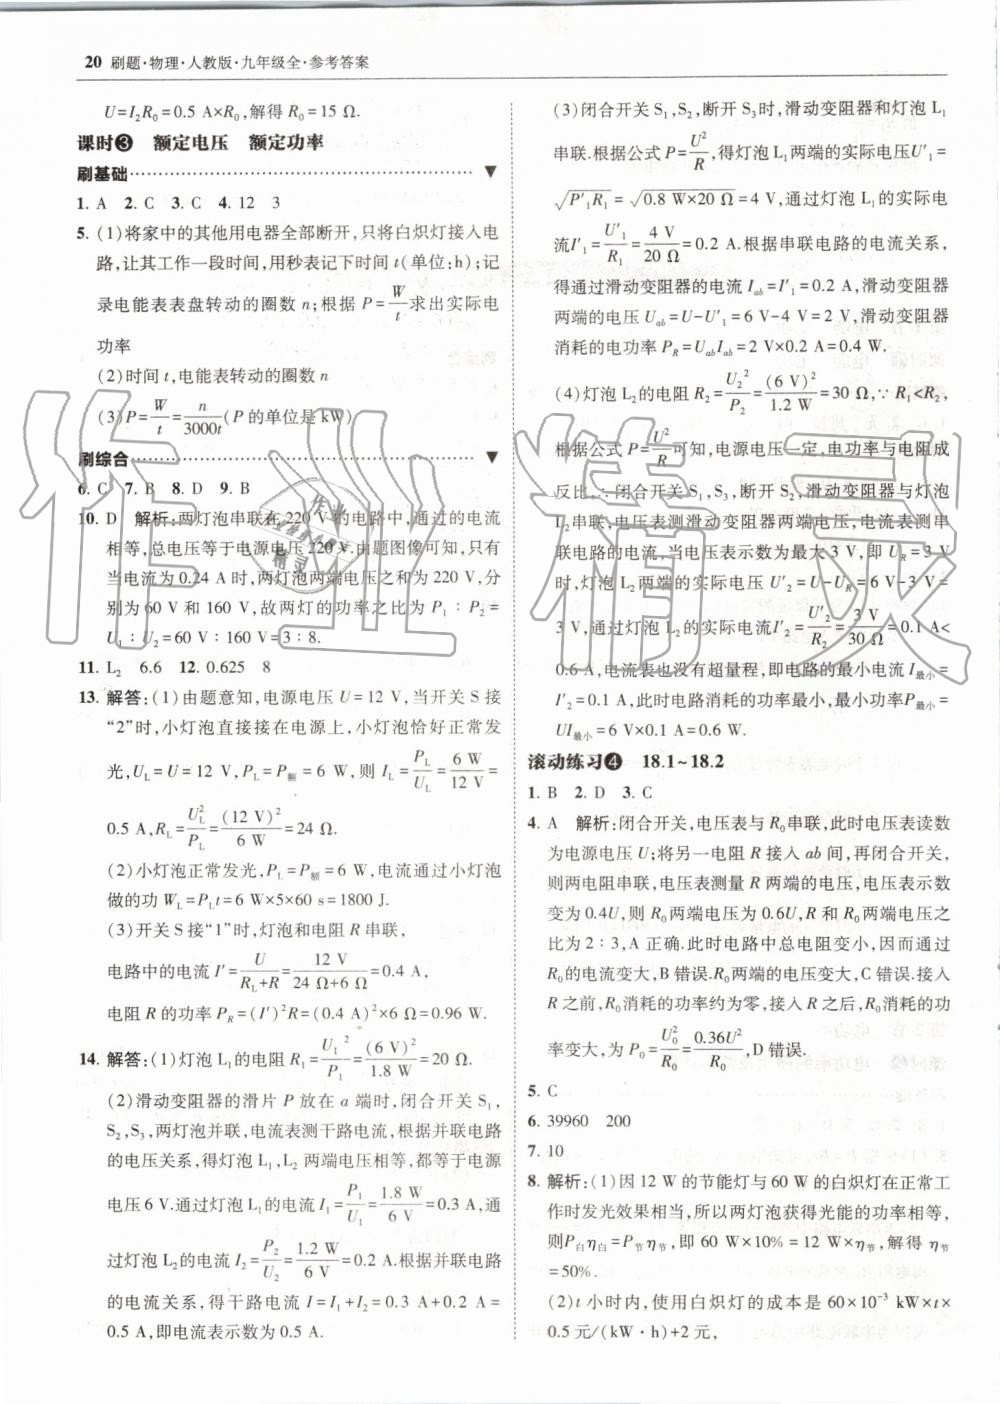 20 刷题·物理·人教版·九年级全·参考答案
U=I₂R₀=0.5 A×R₀,解得 R₀=15 Ω.
课时❸ 额定电压 额定功率
刷基础
1. A 2. C 3. C 4. 12 3
5. (1)将家中的其他用电器全部断开,只将白炽灯接入电
路,让其工作一段时间,用秒表记下时间 t(单位:h);记
录电能表表盘转动的圈数 n;根据 P=W/t求出实际电
功率
(2)时间 t,电能表转动的圈数 n
(3)P=W/t=n/3000t(P 的单位是 kW)
刷综合
6. C 7. B 8. D 9. B
10. D 解析:两灯泡串联在 220 V 的电路中,通过的电流
相等,总电压等于电源电压 220 V.由题图像可知,只有
当电流为 0.24 A 时,两灯泡两端电压之和为 220 V,分
别为 60 V 和 160 V,故两灯的功率之比为 P₁∶P₂=
U₁∶U₂=60 V∶160 V=3∶8.
11. L₂ 6.6 12. 0.625 8
13. 解答:(1)由题意知,电源电压 U=12 V,当开关 S 接
“2”时,小灯泡直接接在电源上,小灯泡恰好正常发
光,U_L=U=12 V,P_L=P额=6 W,则 I_L=P_L/U_L=6 W/12 V=
0.5 A,R_L=U_L²/P_L=(12 V)²/6 W=24 Ω.
(2)小灯泡正常发光,P_L=P额=6 W,电流通过小灯泡
做的功 W_L=P_Lt=6 W×5×60 s=1800 J.
(3)开关 S 接“1”时,灯泡和电阻 R 串联,
电路中的电流 I′=U/(R_L+R)=12 V/(24 Ω+6 Ω)=0.4 A,
电阻 R 的功率 P_R=(I′)²R=(0.4 A)²×6 Ω=0.96 W.
14. 解答:(1)灯泡 L₁的电阻 R₁=U₁²/P₁=(6 V)²/1.8 W=20 Ω.
(2)滑动变阻器的滑片 P 放在 a 端时,闭合开关 S₁,
S₂,S₃,两灯泡并联,电流表测干路电流,根据并联电路
的电压关系,得灯泡 L₁,L₂ 两端电压相等,都等于电源
电压 6 V.通过灯泡 L₁的电流 I₁=P₁/U₁=1.8 W/6 V=0.3 A,通
过灯泡 L₂的电流 I₂=P₂/U₂=1.2 W/6 V=0.2 A.根据并联电路
的电流关系,得干路电流 I=I₁+I₂=0.3 A+0.2 A=
0.5 A,即电流表示数为 0.5 A.
(3)闭合开关 S₁,S₂,断开 S₃时,滑动变阻器和灯泡 L₁
串联.根据公式 P=U²/R,得灯泡 L₁两端的实际电压U′₁=
√(P′₁R₁)=√(0.8 W×20 Ω)=4 V,通过灯泡 L₁的实际电
流I′₁=U′₁/R₁=4 V/20 Ω=0.2 A.根据串联电路的电流关系,
得通过滑动变阻器的电流 I_ab=I′₁=0.2 A,滑动变阻器
两端的电压 U_ab=U-U′₁=6 V-4 V=2 V,滑动变阻器
消耗的电功率 P_R=U_abI_ab=2 V×0.2 A=0.4 W.
(4)灯泡 L₂的电阻 R₂=U₂²/P₂=(6 V)²/1.2 W=30 Ω,∵R₁<R₂,
根据公式 P=U²/R可知,电源电压一定,电功率与电阻成
反比,∴闭合开关 S₁,S₃,断开 S₂,滑动变阻器与灯泡
L₂串联,电压表测滑动变阻器两端电压,电流表测串
联电路的电流,当电压表示数为最大 3 V,即 U_R=3 V
时,灯泡 L₂两端的实际电压 U′₂=U-U_R=6 V-3 V=
3 V,通过灯泡 L₂的实际电流I′₂=U′₂/R₂=3 V/30 Ω=0.1 A<
0.6 A,电流表也没有超量程,即电路的最小电流 I最小=
I′₂=0.1 A,此时电路消耗的功率最小,最小功率P最小=
UI最小=6 V×0.1 A=0.6 W.
滚动练习❹ 18.1~18.2
1. B 2. D 3. C
4. A 解析:闭合开关,电压表与 R₀串联,此时电压表读数
为电源电压 U;将另一电阻 R 接入 ab 间,再闭合开关,
则两电阻串联,电压表测量 R 两端的电压,电压表示数
变为 0.4U,则 R₀两端电压为 0.6U,R 和 R₀两端电压之
比为 2∶3,A 正确.此时电路中总电阻变小,因而通过
R₀的电流变大,B 错误.R₀两端的电压变大,C 错误.接入
R 之前,R₀消耗的功率约为零,接入 R 之后,R₀消耗的功
率变大,为 P₀=U₀²/R₀=0.36U²/R₀,D 错误.
5. C
6. 39960 200
7. 10
8. 解析:(1)因 12 W 的节能灯与 60 W 的白炽灯在正常工
作时发光效果相当,所以两灯泡获得光能的功率相等,
则P白η白=P节η节,即 60 W×10%=12 W×η节,解得 η节
=50%.
(2)t 小时内,使用白炽灯的成本是 60×10⁻³ kW×t×
0.5 元/(kW·h)+2 元,
作业精灵